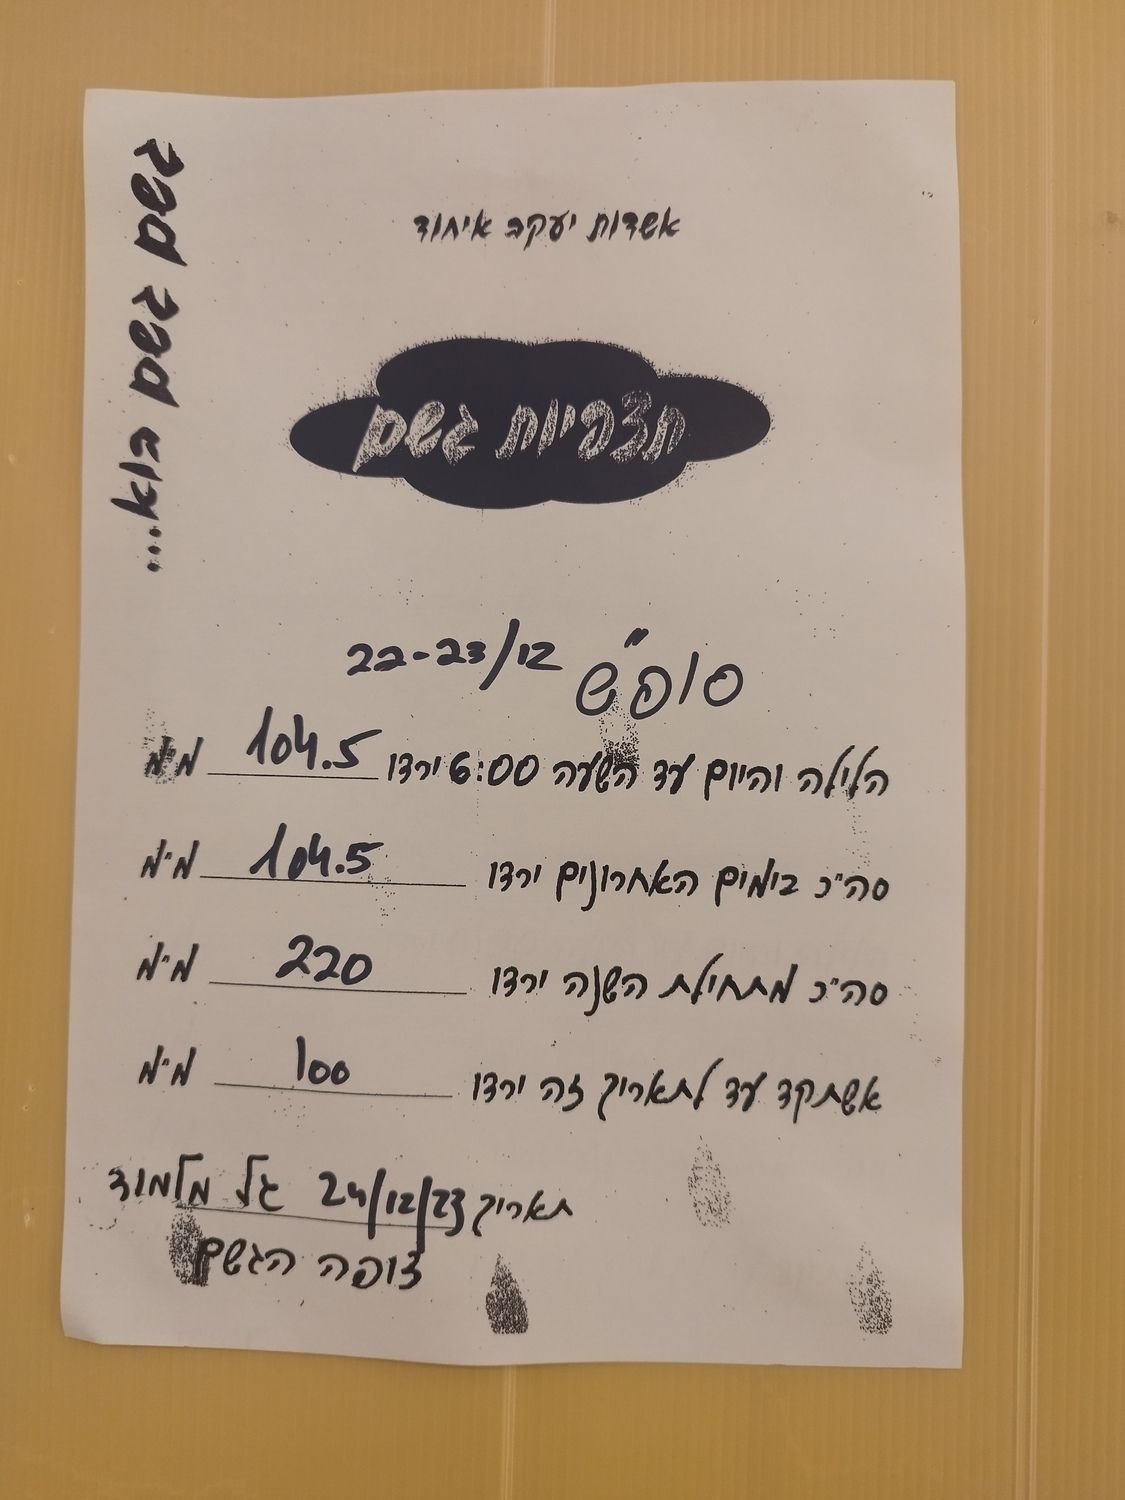 גשם גשם בוא...
אשדות יעקב איחוד
תצפיות גשם
סופ"ש 22-23/12
הלילה והיום עד השעה 6:00 ירדו 104.5 מ"מ
סה"כ בימים האחרונים ירדו 104.5 מ"מ
סה"כ מתחילת השנה ירדו 220 מ"מ
אשתקד עד לתאריך זה ירדו 100 מ"מ
תאריך 24/12/23 גל מלמוד
צופה הגשם